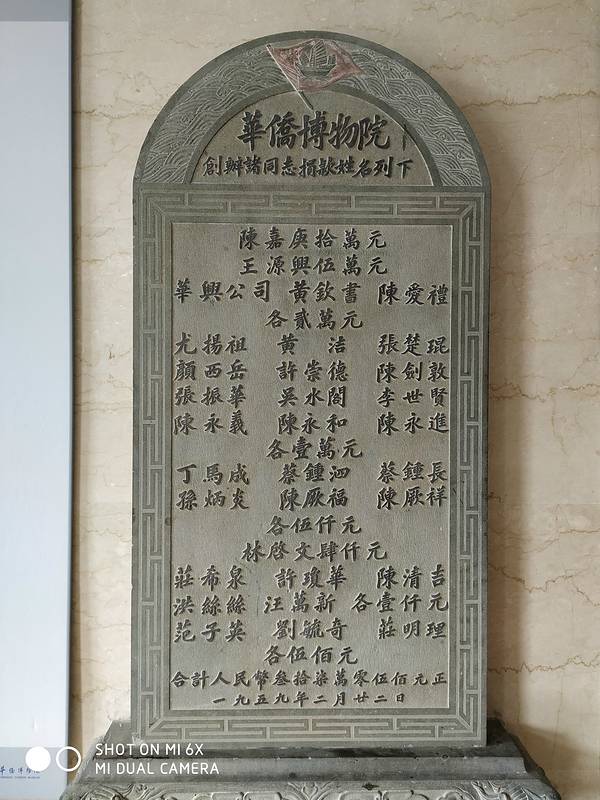 華僑博物院
創辦諸同志捐款姓名列下
陳嘉庚拾萬元
王源興伍萬元
華興公司 黃欽書 陳愛禮
各貳萬元
尤揚祖 黃洁 張楚琨
顏西岳 許崇德 陳劍敦
張振華 吳水閣 李世賢
陳永義 陳永和 陳永進
各壹萬元
丁馬成 蔡鍾泗 蔡鍾長
孫炳炎 陳厥福 陳厥祥
各伍仟元
林啓文肆仟元
莊希泉 許瓊華 陳清吉
洪絲絲 汪萬新 各壹仟元
范子英 劉毓奇 莊明理
各伍佰元
合計人民幣叁拾柒萬零伍佰元正
一九五九年二月廿二日
SHOT ON MI 6X
MI DUAL CAMERA